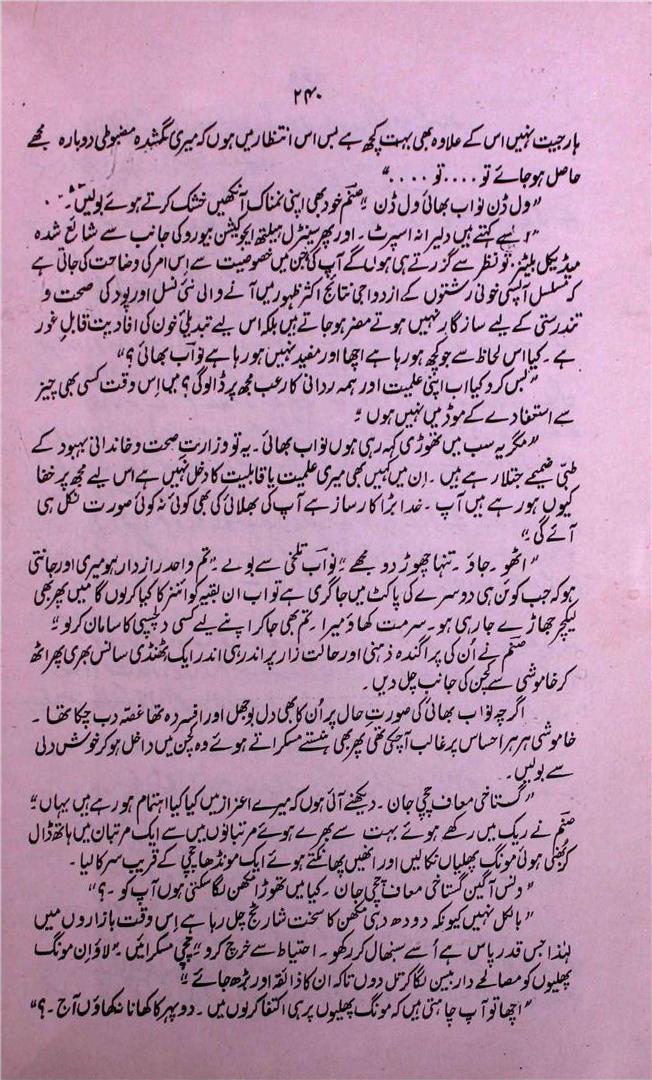 ۲۴۰
ہار جیت نہیں اس کے علاوہ بھی بہت کچھ ہے بس اس انتظار میں ہوں کہ میری گمشدہ مضبوطی دوبارہ مجھے
حاصل ہو جائے تو ۔۔۔۔ تو ۔۔۔۔"
"ول ڈن نواب بھائی ول ڈن" صنم خود بھی اپنی نمناک آنکھیں خشک کرتے ہوئے بولیں۔
"اسے کہتے ہیں دلیرانہ اسپرٹ ۔ اور پھر سینٹرل ہیلتھ ایجوکیشن بیورو کی جانب سے شائع شدہ
میڈیکل بلیٹنز تو نظر سے گزرتے ہی ہوں گے آپ کی جن میں خصوصیت سے اس امر کی وضاحت کی جاتی ہے
کہ تسلسل آپسی خونی رشتوں کے ازدواجی نتائج اکثر ظہور میں آنے والی نئی نسل اور پود کی صحت و
تندرستی کے لیے ساز گار نہیں ہوتے مضر ہو جاتے ہیں بلکہ اس لیے تبدیلیٔ خون کی افادیت قابلِ غور
ہے ۔ کیا اس لحاظ سے جو کچھ ہو رہا ہے اچھا اور مفید نہیں ہو رہا ہے نواب بھائی ؟"
"بس کرو کیا اب اپنی علمیت اور ہمہ ردانی کا رعب مجھ پر ڈالو گی ؟ میں اس وقت کسی بھی چیز
سے استفادے کے موڈ میں نہیں ہوں"
"مگر یہ سب میں تھوڑی کہہ رہی ہوں نواب بھائی ۔ یہ تو وزارتِ صحت و خاندانی بہبود کے
طبی ضمیمے جتلا رہے ہیں ۔ ان میں کہیں بھی میری علمیت یا قابلیت کا دخل نہیں ہے اس لیے مجھ پر خفا
کیوں ہو رہے ہیں آپ ۔ خدا بڑا کارساز ہے آپ کی بھلائی کی بھی کوئی نہ کوئی صورت نکل ہی
آئے گی"
"اٹھو ۔ جاؤ ۔ تنہا چھوڑ دو مجھے" نواب تلخی سے بولے "تم واحد راز دار ہو میری اور جانتی
ہو کہ جب کوئن ہی دوسرے کی پاکٹ میں جا گری ہے تو اب ان بقیہ کوائنز کا کیا کروں گا میں پھر بھی
لیکچر جھاڑے جا رہی ہو ۔ سر مت کھاؤ میرا ۔ تم بھی جا کر اپنے لیے کسی دلچسپی کا سامان کر لو"
صنم نے اُن کی پراگندہ ذہنی اور حالت زار پر اندر ہی اندر ایک ٹھنڈی سانس بھری پھر اٹھ
کر خاموشی سے کچن کی جانب چل دیں ۔
اگرچہ نواب بھائی کی صورتِ حال پر اُن کا بھی دل بوجھل اور افسردہ تھا غصّہ دب چکا تھا ۔
خاموشی ہر ہر احساس پر غالب آچکی تھی پھر بھی ہنستے مسکراتے ہوئے وہ کچن میں داخل ہو کر خوش دلی
سے بولیں ۔
"گستاخی معاف چچی جان ۔ دیکھنے آئی ہوں کہ میرے اعزاز میں کیا کیا اہتمام ہو رہے ہیں یہاں"
صنم نے ریک میں رکھے ہوئے بہت سے بھرے ہوئے مرتبانوں میں سے ایک مرتبان میں ہاتھ ڈال
کر بھنی ہوئی مونگ پھلیاں نکالیں اور انھیں پھانکتے ہوئے ایک مونڈھا چچی کے قریب سرکا لیا ۔
"ونس آگین گستاخی معاف چچی جان ۔ کیا میں تھوڑا مکھن لگا سکتی ہوں آپ کو ۔؟"
"بالکل نہیں کیونکہ دودھ دہی مکھن کا سخت شارٹیج چل رہا ہے اس وقت بازاروں میں
لہٰذا جس قدر پاس ہے اُسے سنبھال کر رکھو ۔ احتیاط سے خرچ کرو" چچی مسکرائیں "لاؤ ان مونگ
پھلیوں کو مصالحے دار بیسن لگا کر تل دوں تاکہ ان کا ذائقہ اور بڑھ جائے"
"اچھا تو آپ چاہتی ہیں کہ مونگ پھلیوں پر ہی اکتفا کر لوں میں ۔ دوپہر کا کھانا نہ کھاؤں آج ۔؟"